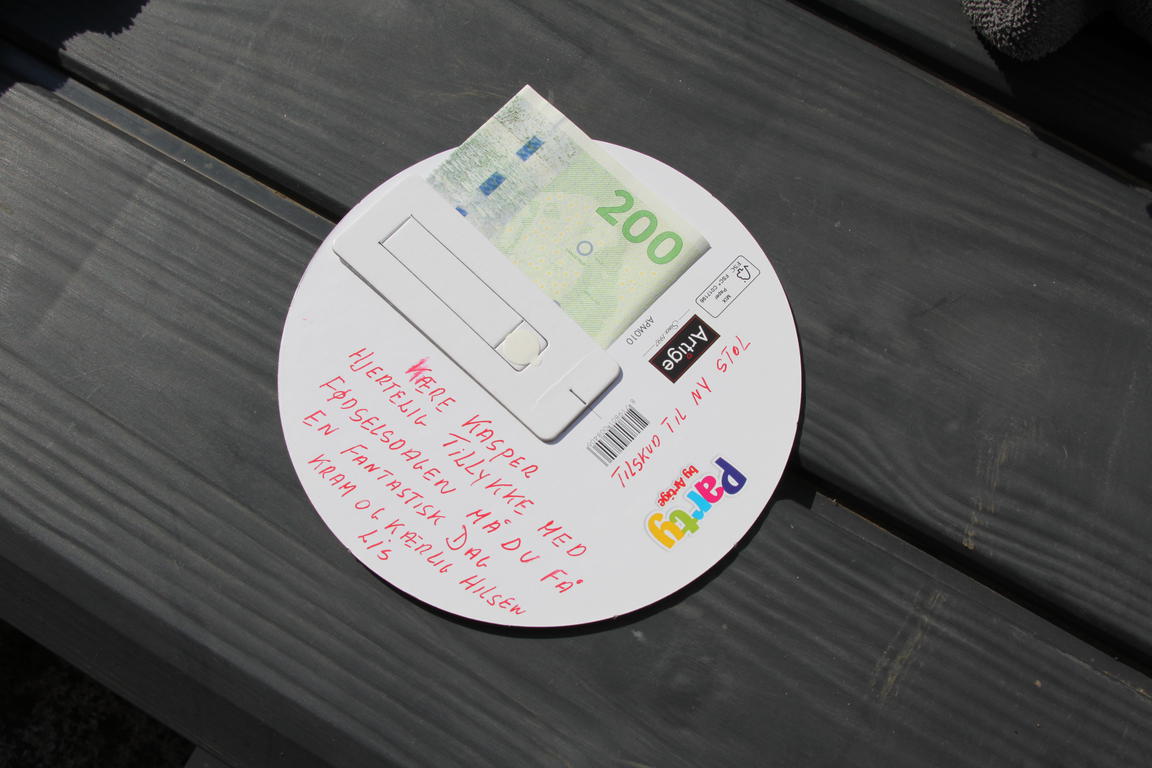 KÆRE KASPER
HJERTELIG TILLYKKE MED
FØDSELSDAGEN MÅ DU FÅ
EN FANTASTISK DAG
KRAM OG KÆRLIG HILSEN
LIS
TILSKUD TIL AN
200
FSC
MIX
Paper
FSC® C017195
APM010
Since 1997
Artige
Party
by Artige